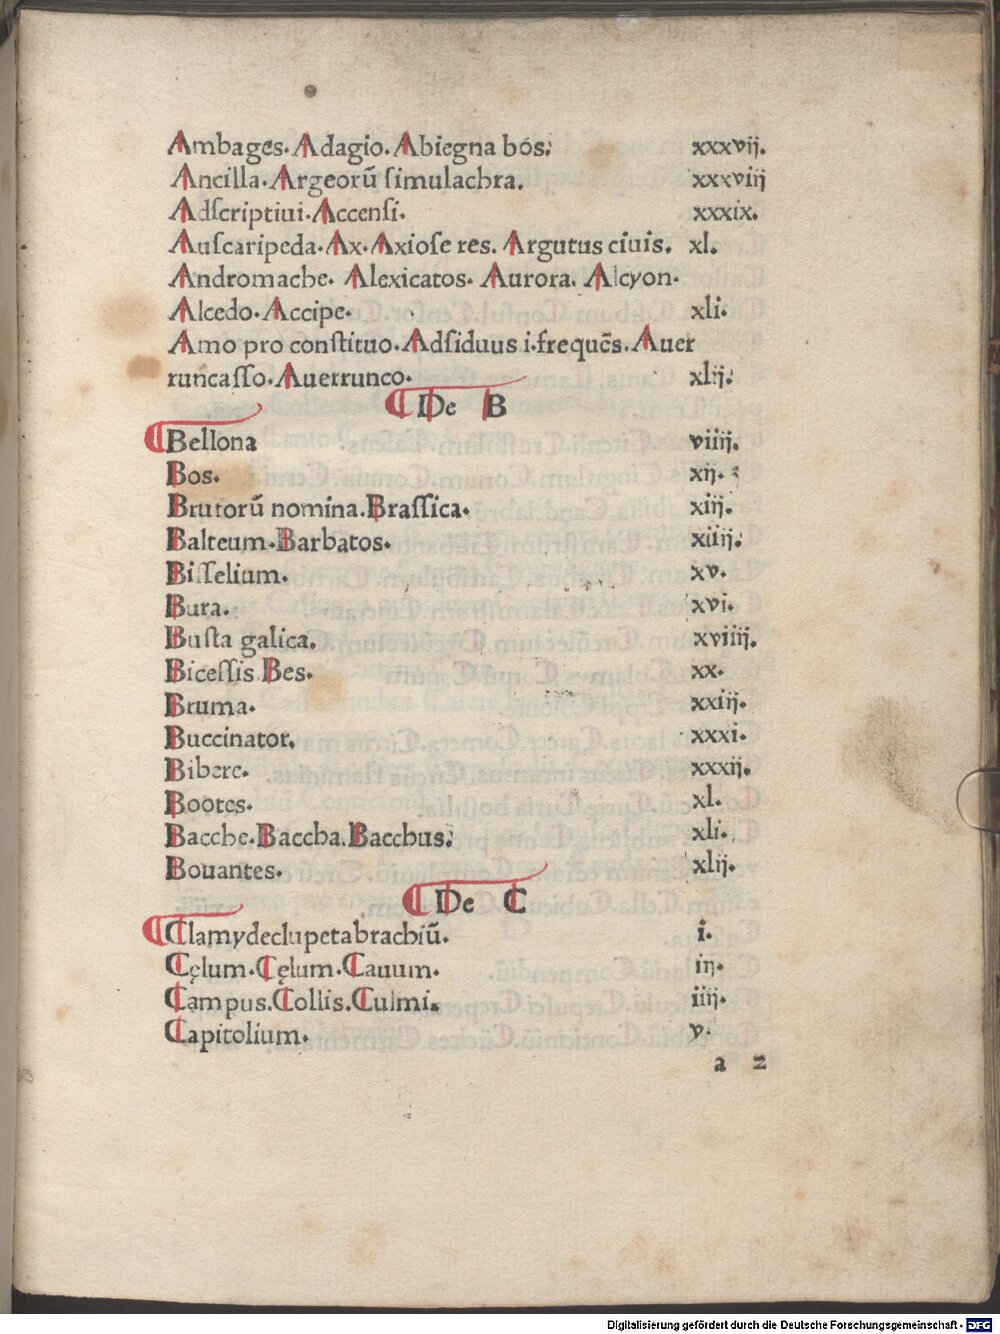 Ambages. Adagio. Abiegna bos. xxxvij.
Ancilla. Argeorū ſimulachra. xxxviij
Adſcriptiui. Accenſi. xxxix.
Auſcaripeda. Ax. Axioſe res. Argutus ciuis. xl.
Andromache. Alexicatos. Aurora. Alcyon.
Alcedo. Accipe. xli.
Amo pro conſtituo. Adſiduus i. frequēs. Auer
runcaſſo. Auerrunco. xlij.
De B
Bellona viiij.
Bos. xij.
Brutorū nomina. Braſſica. xiij.
Balteum. Barbatos. xiiij.
Biſſelium. xv.
Bura. xvi.
Buſta galica. xviiij.
Biceſſis Bes. xx.
Bruma. xxiij.
Buccinator. xxxi.
Bibere. xxxij.
Bootes. xl.
Bacche. Baccha. Bacchus. xli.
Bouantes. xlij.
De C
Clamydeclupetabrachiū. i.
Cęlum. Cęlum. Cauum. iij.
Campus. Collis. Culmi. iiij.
Capitolium. v.
a 2
Digitalisierung gefördert durch die Deutsche Forschungsgemeinschaft - DFG